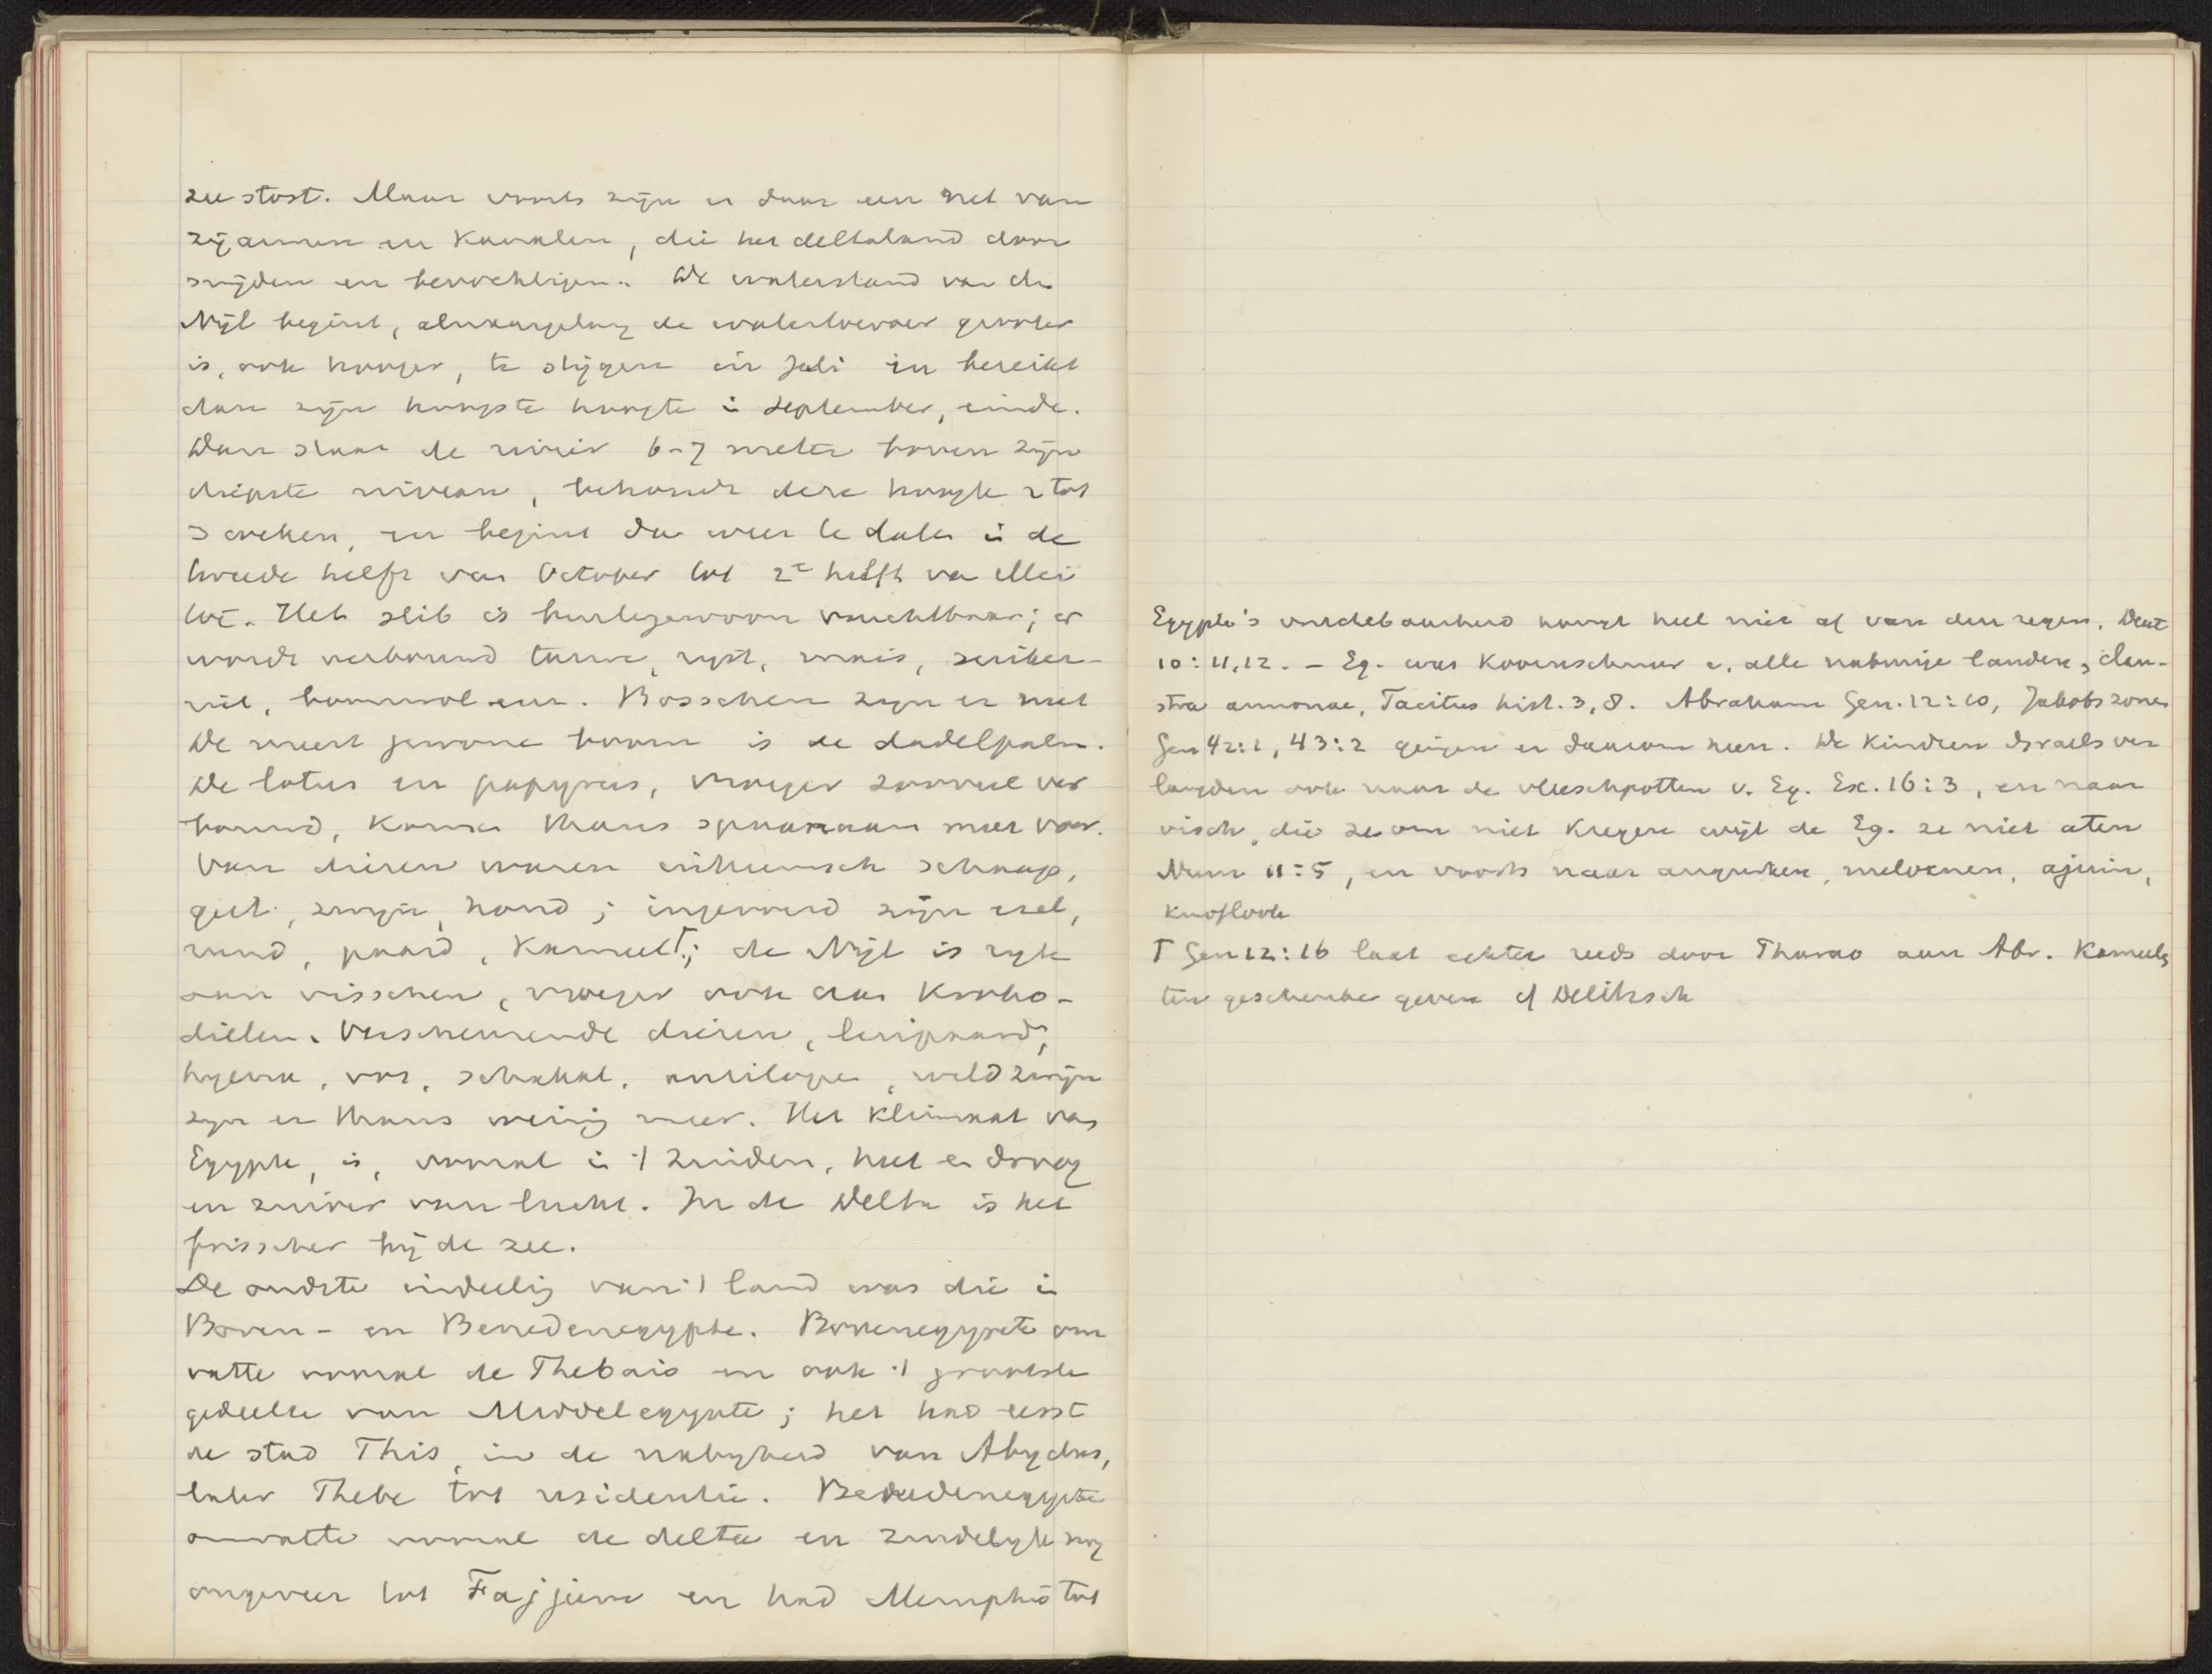 zee stost. Maar voorts zijn er daar een net van
zijarmen en Kanalen, die het deltaland door
snijden en bevochtigen. De waterstand van de
Nijl begint, alnaargelang de watertoevoer grooter
is, ook hooger, te stijgen in Juli en bereikt
dan zijn hoogste hoogte in September, einde.
Dan staat de rivier 6-7 meter boven zijn
diepste niveau, behoudt deze hoogte 2 tot
3 weken, en begint dan weer te dalen in de
tweede helft van October tot 2e helft van Mei
toe. Het slib is buitengewoon vruchtbaar; er
wordt verbouwd tarwe, rijst, mais, suiker-
riet, boomwol enz. Bosschen zijn er niet
De meest gewone boom is de dadelpalm.
De lotus en papyrus, vroeger zooveel ver
bouwd, komen thans spaarzaam meer voor.
Van dieren waren inheemsch schaap,
geit, zwijn, hond; ingevoerd zijn ezel,
rund, paard, Kameel T; de Nijl is rijk
aan visschen, vroeger ook aan Kroko-
dillen. Verscheurende dieren, luipaard,
hyena, vos, schakal, antilope, wild zwijn
zijn er thans weinig meer. Het klimaat van
Egypte, is, vooral in 't Zuiden, heet en droog
en zuiver van lucht. In de Delta is het
frisscher bij de zee.
De oudste indeeling van 't land was die in
Boven- en Benedenegypte. Bovenegypte om
vatte vooral de Thebais en ook 't grootste
gedeelte van Middelegypte; het had eerst
de stad This, in de nabijheid van Abydos,
later Thebe tot residentie. Benedenegypte
omvatte vooral de delta en zuidelijk nog
ongeveer tot Fajjum en had Memphis tot
Egypte's vruchtbaarheid hangt heel niet af van den regen, Deut
10:11,12. - Eg. was Koornschuur v. alle naburige landen, clau-
stra annonae, Tacitus hist. 3,8. Abraham Gen. 12:10, Jakobs zonen
Gen 42:1, 43:2 gingen er daarom heen. De Kinderen Israels ver
langden ook naar de vleeschpotten v. Eg. Ex. 16:3, en naar
visch, die ze om niet kregen wijl de Eg. ze niet aten
Num 11:5, en voorts naar augurken, meloenen, ajuin,
knoflook
T Gen 12:16 laat echter reeds door Pharao aan Abr. Kameels
ten geschenke geven cf Delitzsch